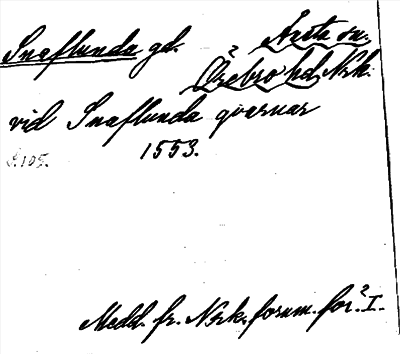 Snaflunda gd. Axsta sn.
Örebro hd, Nrk.
vid Snaflunda qvarnar
S.105. 1553.
Medd. fr. Nrk. fornm. för. I.